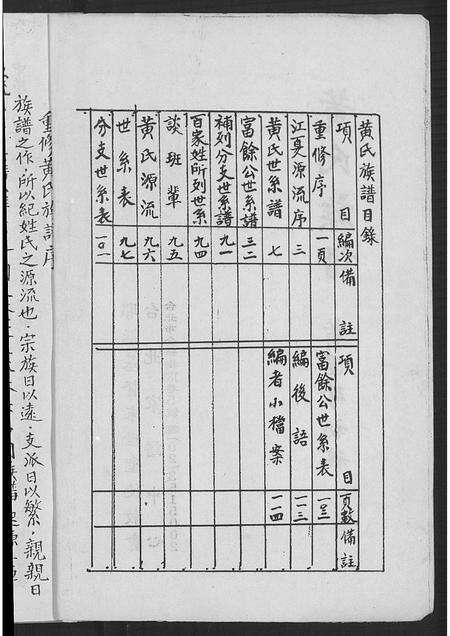 黃氏族譜目錄
項目 編次 備註
重修序 一頁
江夏源流序 三
黃氏世系譜 七
富餘公世系譜 三二
補列分支世系譜 九一
百家姓所列世系 九四
談班輩 九五
黃氏源流 九六
世系表 九七
分支世系表 一〇一
項目 頁數 備註
富餘公世系表 一〇三
編後語 一一三
編者小檔案 一一四
重修黃氏族譜序
族譜之作，所以紀姓氏之源流也．宗族日以遠．支派日以繁．親親日